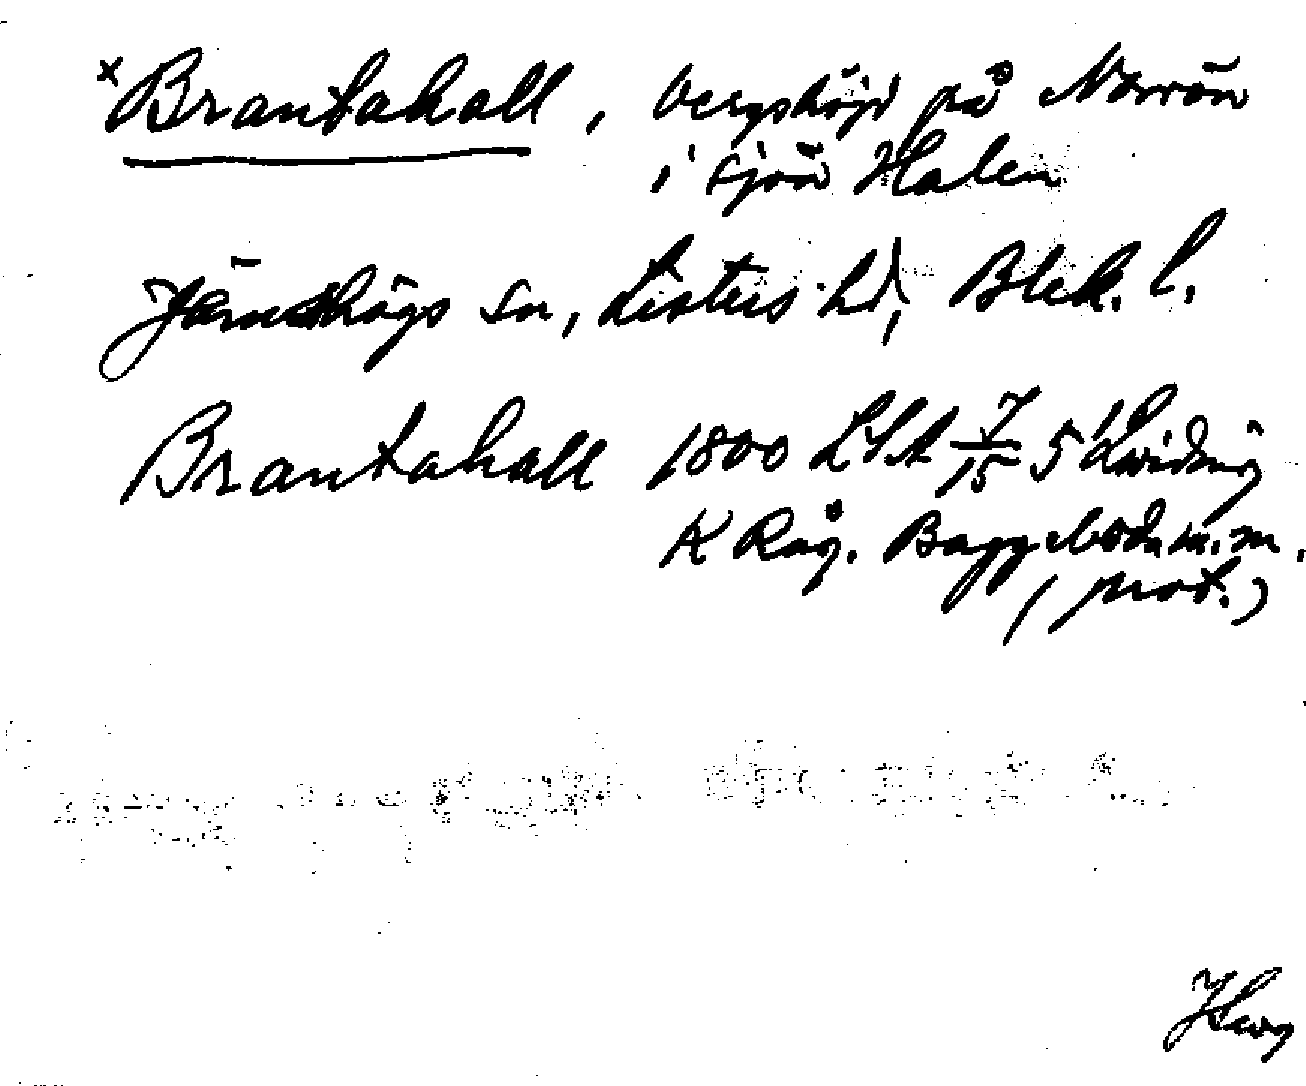 x Brantahall, bergshöjd på Norrön
i sjön Halen
Jämshögs sn, Listers hd, Blek. l.
Brantahall 1800 LSA 7/15 Skridning
K Råg. Baggeboda m.m.
(prot.)